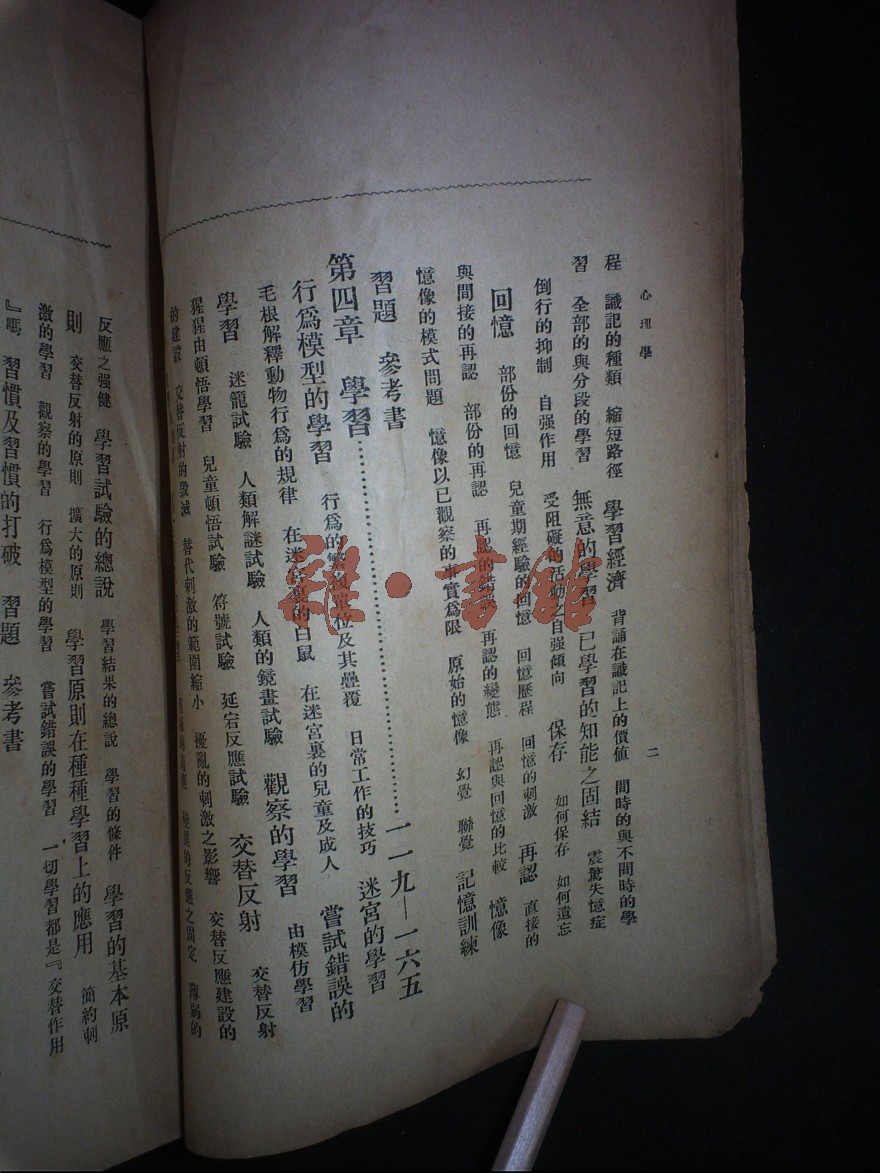 心理學
二
程 識記的種類 縮短路徑 學習經濟 背誦在識記上的價値 間時的與不間時的學
習 全部的與分段的學習 無意的學習 已學習的知能之固結 震驚失憶症
倒行的抑制 自强作用 受阻礙的活動之自强傾向 保存 如何保存 如何遺忘
回憶 部份的回憶 兒童期經驗的回憶 回憶歷程 回憶的刺激 再認 直接的
與間接的再認 部份的再認 再認的錯誤 再認的變態 再認與回憶的比較 憶像
憶像的模式問題 憶像以已觀察的事實爲限 原始的憶像 幻覺 聯覺 記憶訓練
習題 參考書
第四章 學習……一一九—一六五
行爲模型的學習 行爲的繁複單位及其疊覆 日常工作的技巧 迷宮的學習
毛根解釋動物行爲的規律 在迷宮裏的白鼠 在迷宮裏的兒童及成人 嘗試錯誤的
學習 迷籠試驗 人類解謎試驗 人類的鏡畫試驗 觀察的學習 由模仿學習
猩猩由頓悟學習 兒童頓悟試驗 符號試驗 延宕反應試驗 交替反射 交替反射
的建設 交替反射的毀滅 替代刺激的範圍縮小 擾亂的刺激之影響 交替反應建設的
變異的反應之固定 薄弱的
反應之强健 學習試驗的總說 學習結果的總說 學習的條件 學習的基本原
則 交替反射的原則 擴大的原則 學習原則在種種學習上的應用 簡約刺
激的學習 觀察的學習 行爲模型的學習 嘗試錯誤的學習 一切學習都是『交替作用
』嗎 習慣及習慣的打破 習題 參考書
雜·書館